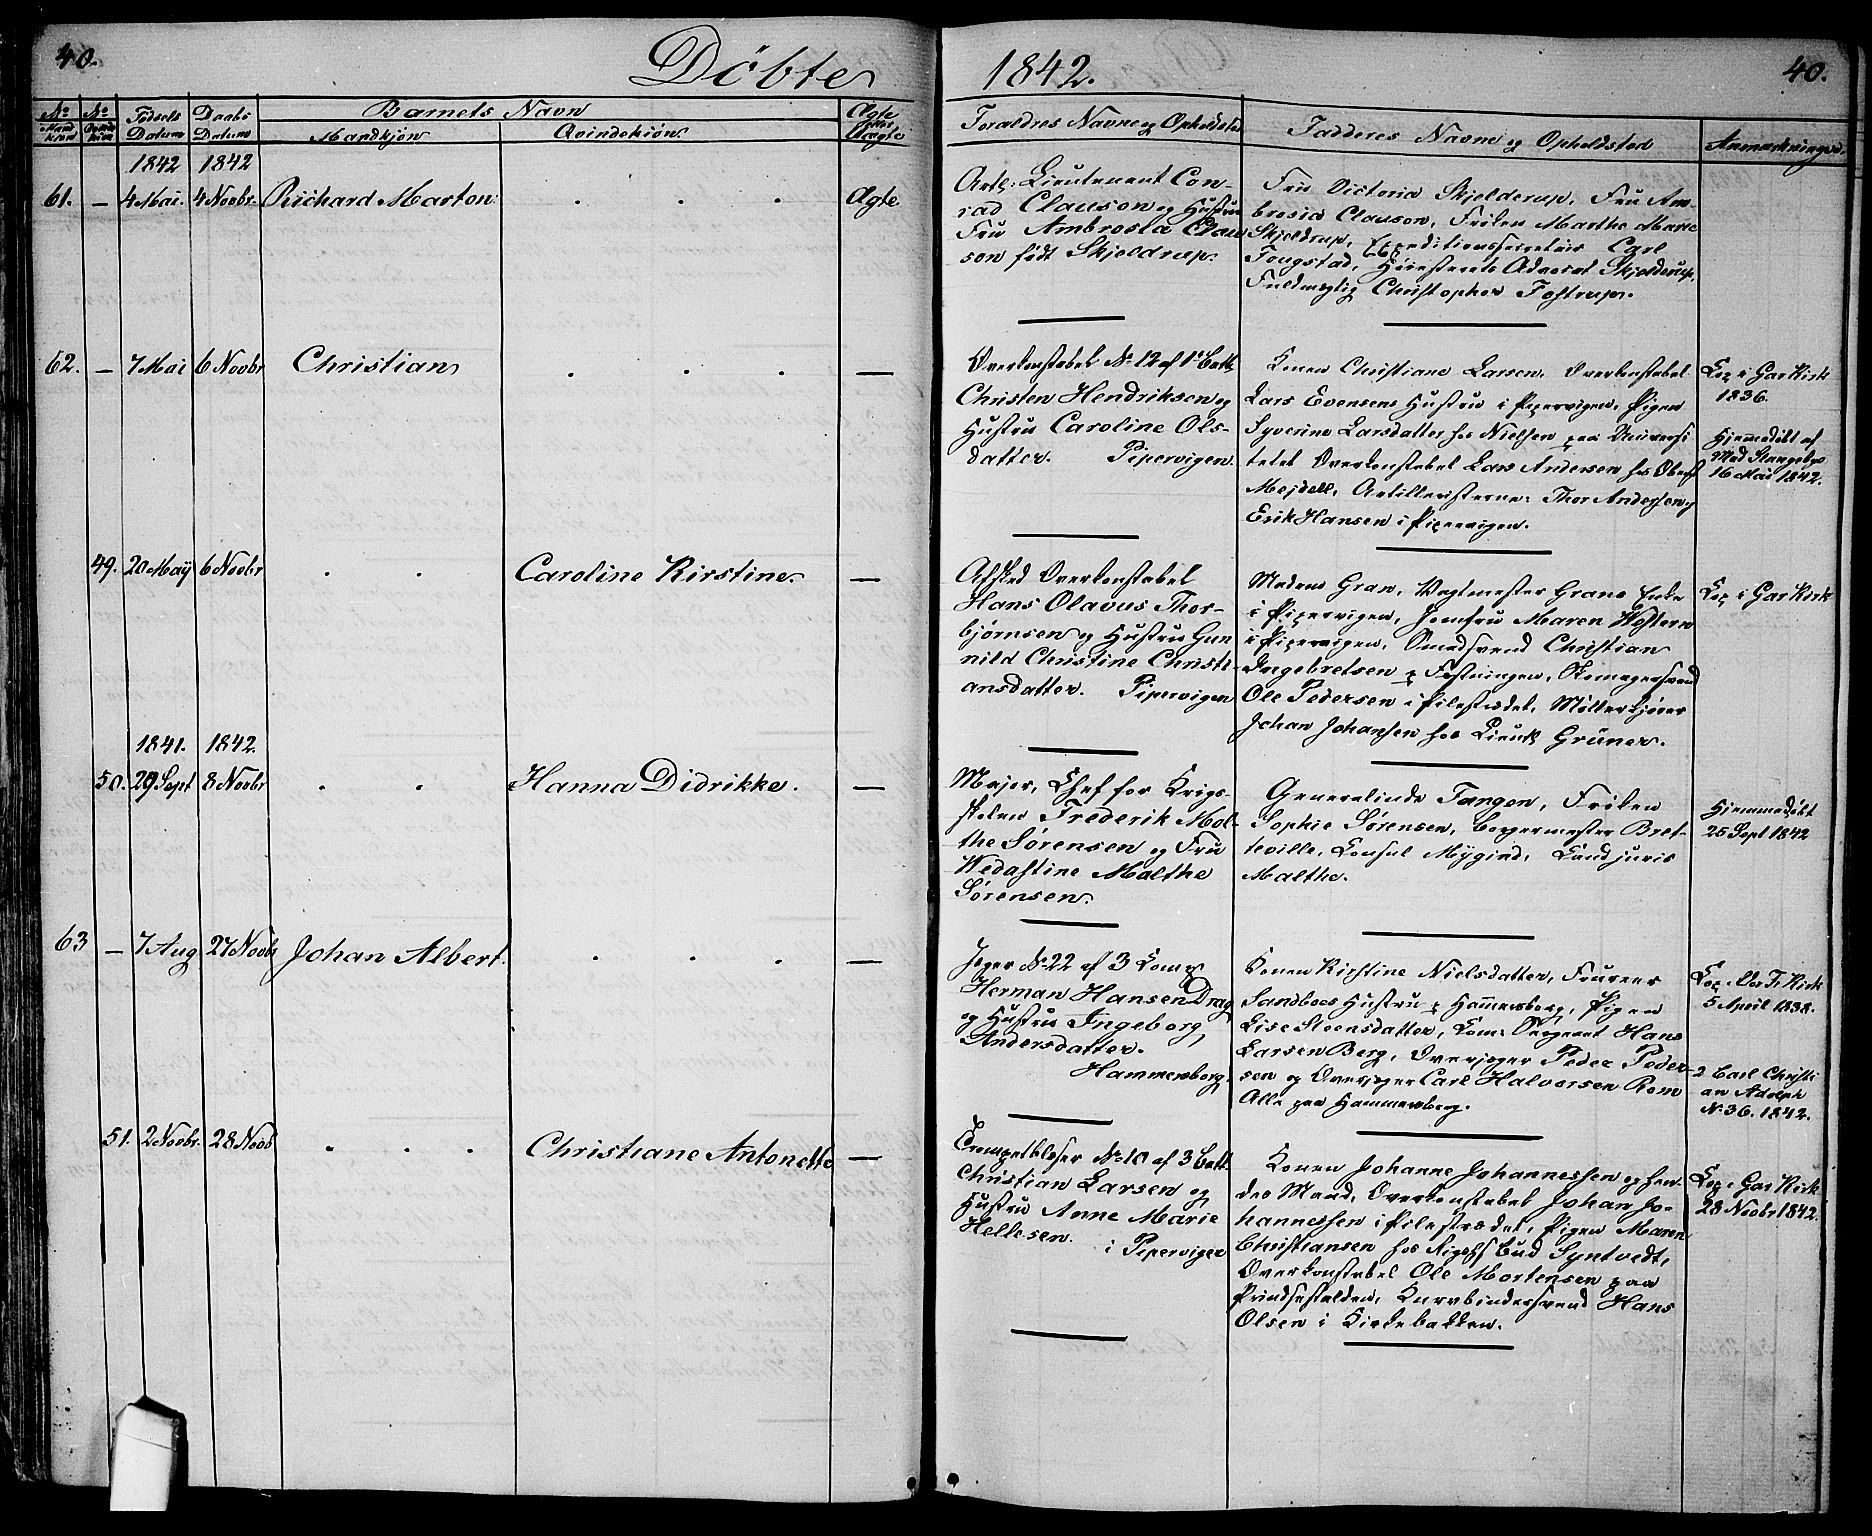 40.
Döbte
1842.
40.
No Mandkiön
No Qvindekiön
Födsels Datum
Daabs Datum
Barnets Navn
Mandkjön
Qvindekiön
Ægte eller Uægte
Foraldres Navne og Opholdsted
Fadderes Navne og Opholdsted
Anmærkninger.
1842 1842
61. — 4 Mai. 4 Novbr. Richard Marton. Ægte
Artl: Lieutenant Con-
rad Clauson og Hustru
Fru Ambrosia Clau
son født Skjeldrup.
Fru Victoria Skjelderup, Fru Am-
brosia Clauson, Frøken Marthe Marie
Skjeldrup, Expeditionssecretair Carl
Fougstad, Høiesterets Advocat Skjelderup,
Fuldmægtig Christopher Fostrup.
62. — 7 Mai 6 Novbr Christian —
Overkonstabel No 12 af 1 Batt
Christen Hendriksen og
Hustru Caroline Ols-
datter. Pipervigen.
Konen Christiane Larsen, Overkonstabel
Lars Evensens Hustru i Pipervigen, Pigen
Syverine Larsdatter hos Nielsen paa Universi
tetet Overkonstabel Lars Andersen hos Oberst
Mejdell, Artilleristerne: Thor Andersen og
Erik Hansen i Pipervigen.
Cop i Gar Kirk
1836.
Hjemmedøbt af
Mad Stangebye
16 Mai 1842.
49. 20 Maÿ 6 Novbr Caroline Kirstine. —
Afsked Overkonstabel
Hans Olavus Thor-
bjørnsen og Hustru Gun
nild Christine Christi-
ansdatter. Pipervigen
Madam Gran, Vagtmester Grans Enke
i Pipervigen, Jomfru Maren Western
i Pipervigen, Smedsvend Christian
Ingebretsen p Festningen, Skomagersvend
Ole Pedersen i Pilestrædet, Møllerkjører
Johan Johansen hos Lieut Grüner.
Cop i Gar Kirk
1841. 1842.
50. 29 Sept 8 Novbr Hanna Didrikke. —
Major, Chef for Krigs-
skolen Frederik Mal-
the Sørensen og Fru
Wedastine Malthe
Sørensen.
Generalinde Tangen, Frøken
Sophie Sørensen, Borgermester Bret-
teville, Consul Mÿgind, Cand juris
Malthe.
Hjemmedøbt
25 Sept 1842
63 — 7 Aug 27 Novbr Johan Albert. —
Jæger No 22 af 3 Comp
Herman Hansen Drag
og Hustru Ingeborg
Andersdatter.
Hammersborg.
Konen Kirstine Nielsdatter,
Sandboes Hustru p Hammersborg, Pigen
Lise Steensdatter, Hans
Larsen Berg, Overjæger Peder Peder-
sen og Overjæger Carl Halvorsen Rom
Alle paa Hammersborg.
Cop i Vor Fr Kirk
5 April 1838.
2 Carl Christi
an Adolph
No 36. 1842.
51. 2 Novbr. 28 Novb Christiane Antonette —
Trompetblæser No 10 af 3 Batt
Christian Larsen og
Hustru Anne Marie
Hellesen. i Pipervigen
Konen Johanne Johannessen og hen-
des Mand, Overkonstabel Johan Jo-
hannessen i Pilestrædet, Pigen Maren
Christiansen hos Bud Syntvedt,
Overkonstabel Ole Mortensen paa
Prindsestalden, Kurvbindersvend Hans
Olsen i Kirkebakken.
Cop i Gar Kirk
28 Novbr 1842.